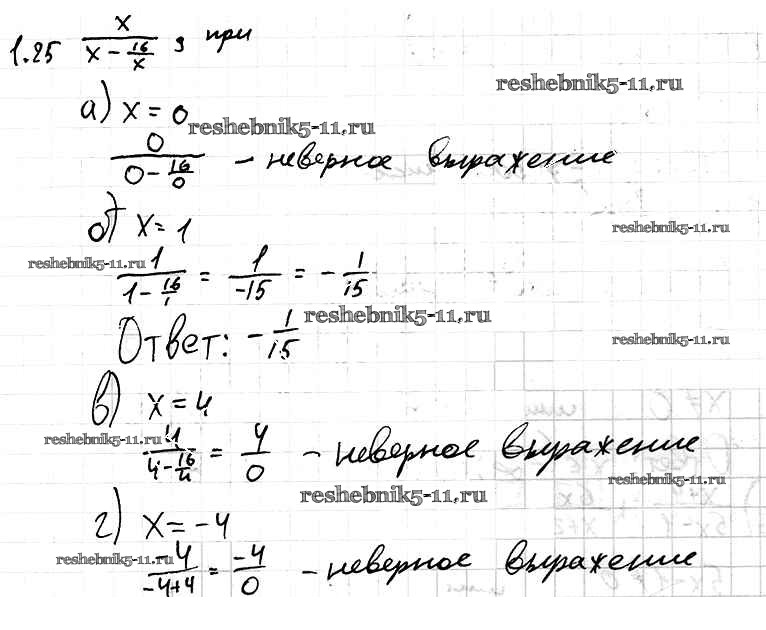 1.25 x / (x - 16/x), при
reshebnik5-11.ru
а) x = 0
reshebnik5-11.ru
0 / (0 - 16/0) - неверное выражение
б) x = 1
reshebnik5-11.ru
reshebnik5-11.ru
1 / (1 - 16/1) = 1/-15 = - 1/15
reshebnik5-11.ru
Ответ: - 1/15
reshebnik5-11.ru
в) x = 4
reshebnik5-11.ru
4 / (4 - 16/4) = 4/0 - неверное выражение
reshebnik5-11.ru
reshebnik5-11.ru
г) x = -4
reshebnik5-11.ru
-4 / (-4+4) = -4/0 - неверное выражение